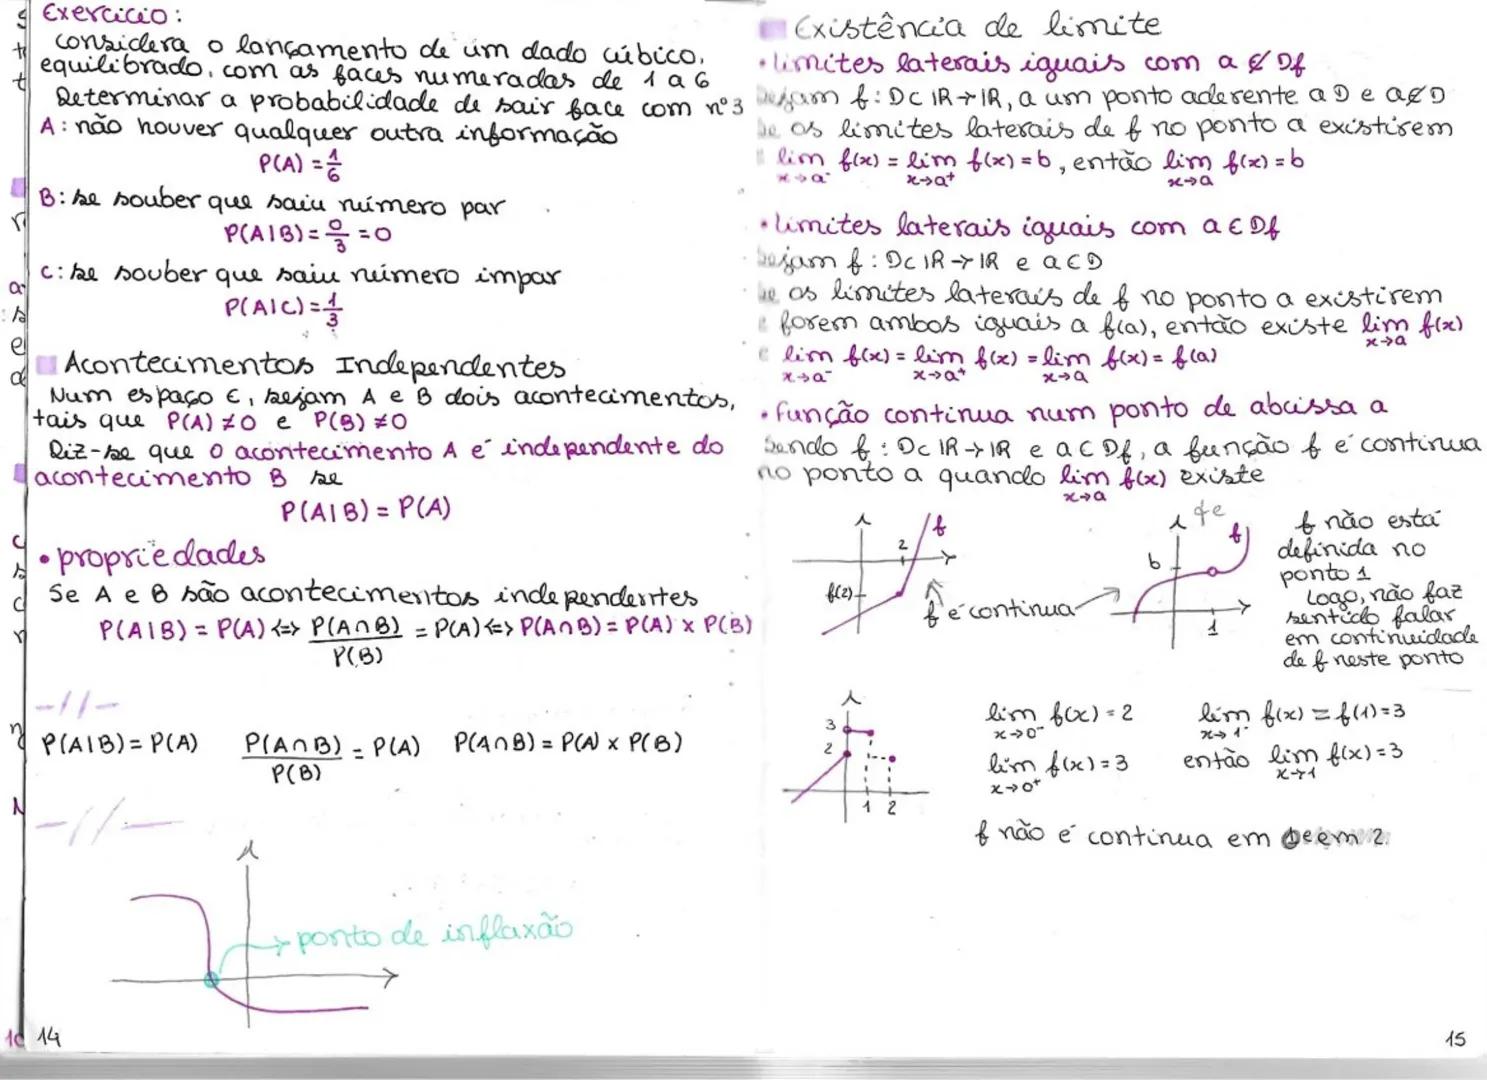 Exercício:
considera o lançamento de um dado cúbico,
equilibrado, com as faces numeradas de 1 a 6
Determinar a probabilidade de sair face com nº3
A: não houver qualquer outra informação
P(A) = 1/6
B: se souber que saiu número par
P(A|B) = 0/3 = 0
C: se souber que saiu número impar
P(A|C) = 1/3
Acontecimentos Independentes
Num espaço E, sejam A e B dois acontecimentos,
tais que P(A) ≠ 0 e P(B) ≠ 0
Diz-se que o acontecimento A é independente do
acontecimento B se
P(A|B) = P(A)
• propriedades
Se A e B são acontecimentos independentes
P(A|B) = P(A) <=> P(A∩B)/P(B) = P(A) <=> P(A∩B) = P(A) x P(B)
-//-
P(A|B) = P(A) P(A∩B)/P(B) = P(A) P(A∩B) = P(A) x P(B)
-//-
ponto de inflaxão
14
Existência de limite
• limites laterais iguais com a ∉ Df
Sejam f: D⊂ℝ→ℝ, a um ponto aderente a D e a∉D
Se os limites laterais de f no ponto a existirem
lim x→a⁻ f(x) = lim x→a⁺ f(x) = b, então lim x→a f(x) = b
• limites laterais iguais com a ∈ Df
Sejam f: D⊂ℝ→ℝ e a∈D
Se os limites laterais de f no ponto a existirem
e forem ambos iguais a f(a), então existe lim x→a f(x)
e lim x→a⁻ f(x) = lim x→a⁺ f(x) = lim x→a f(x) = f(a)
• função continua num ponto de abcissa a
Sendo f: D⊂ℝ→ℝ e a∈Df, a função f é continua
no ponto a quando lim x→a f(x) existe
f
2
f(2)
f é continua
f
b
1
f não está
definida no
ponto 1
Logo, não faz
sentido falar
em continuidade
de f neste ponto
3
2
1 2
lim x→0⁻ f(x) = 2
lim x→0⁺ f(x) = 3
lim x→1⁻ f(x) = f(1) = 3
então lim x→1 f(x) = 3
f não é continua em e em 2
15